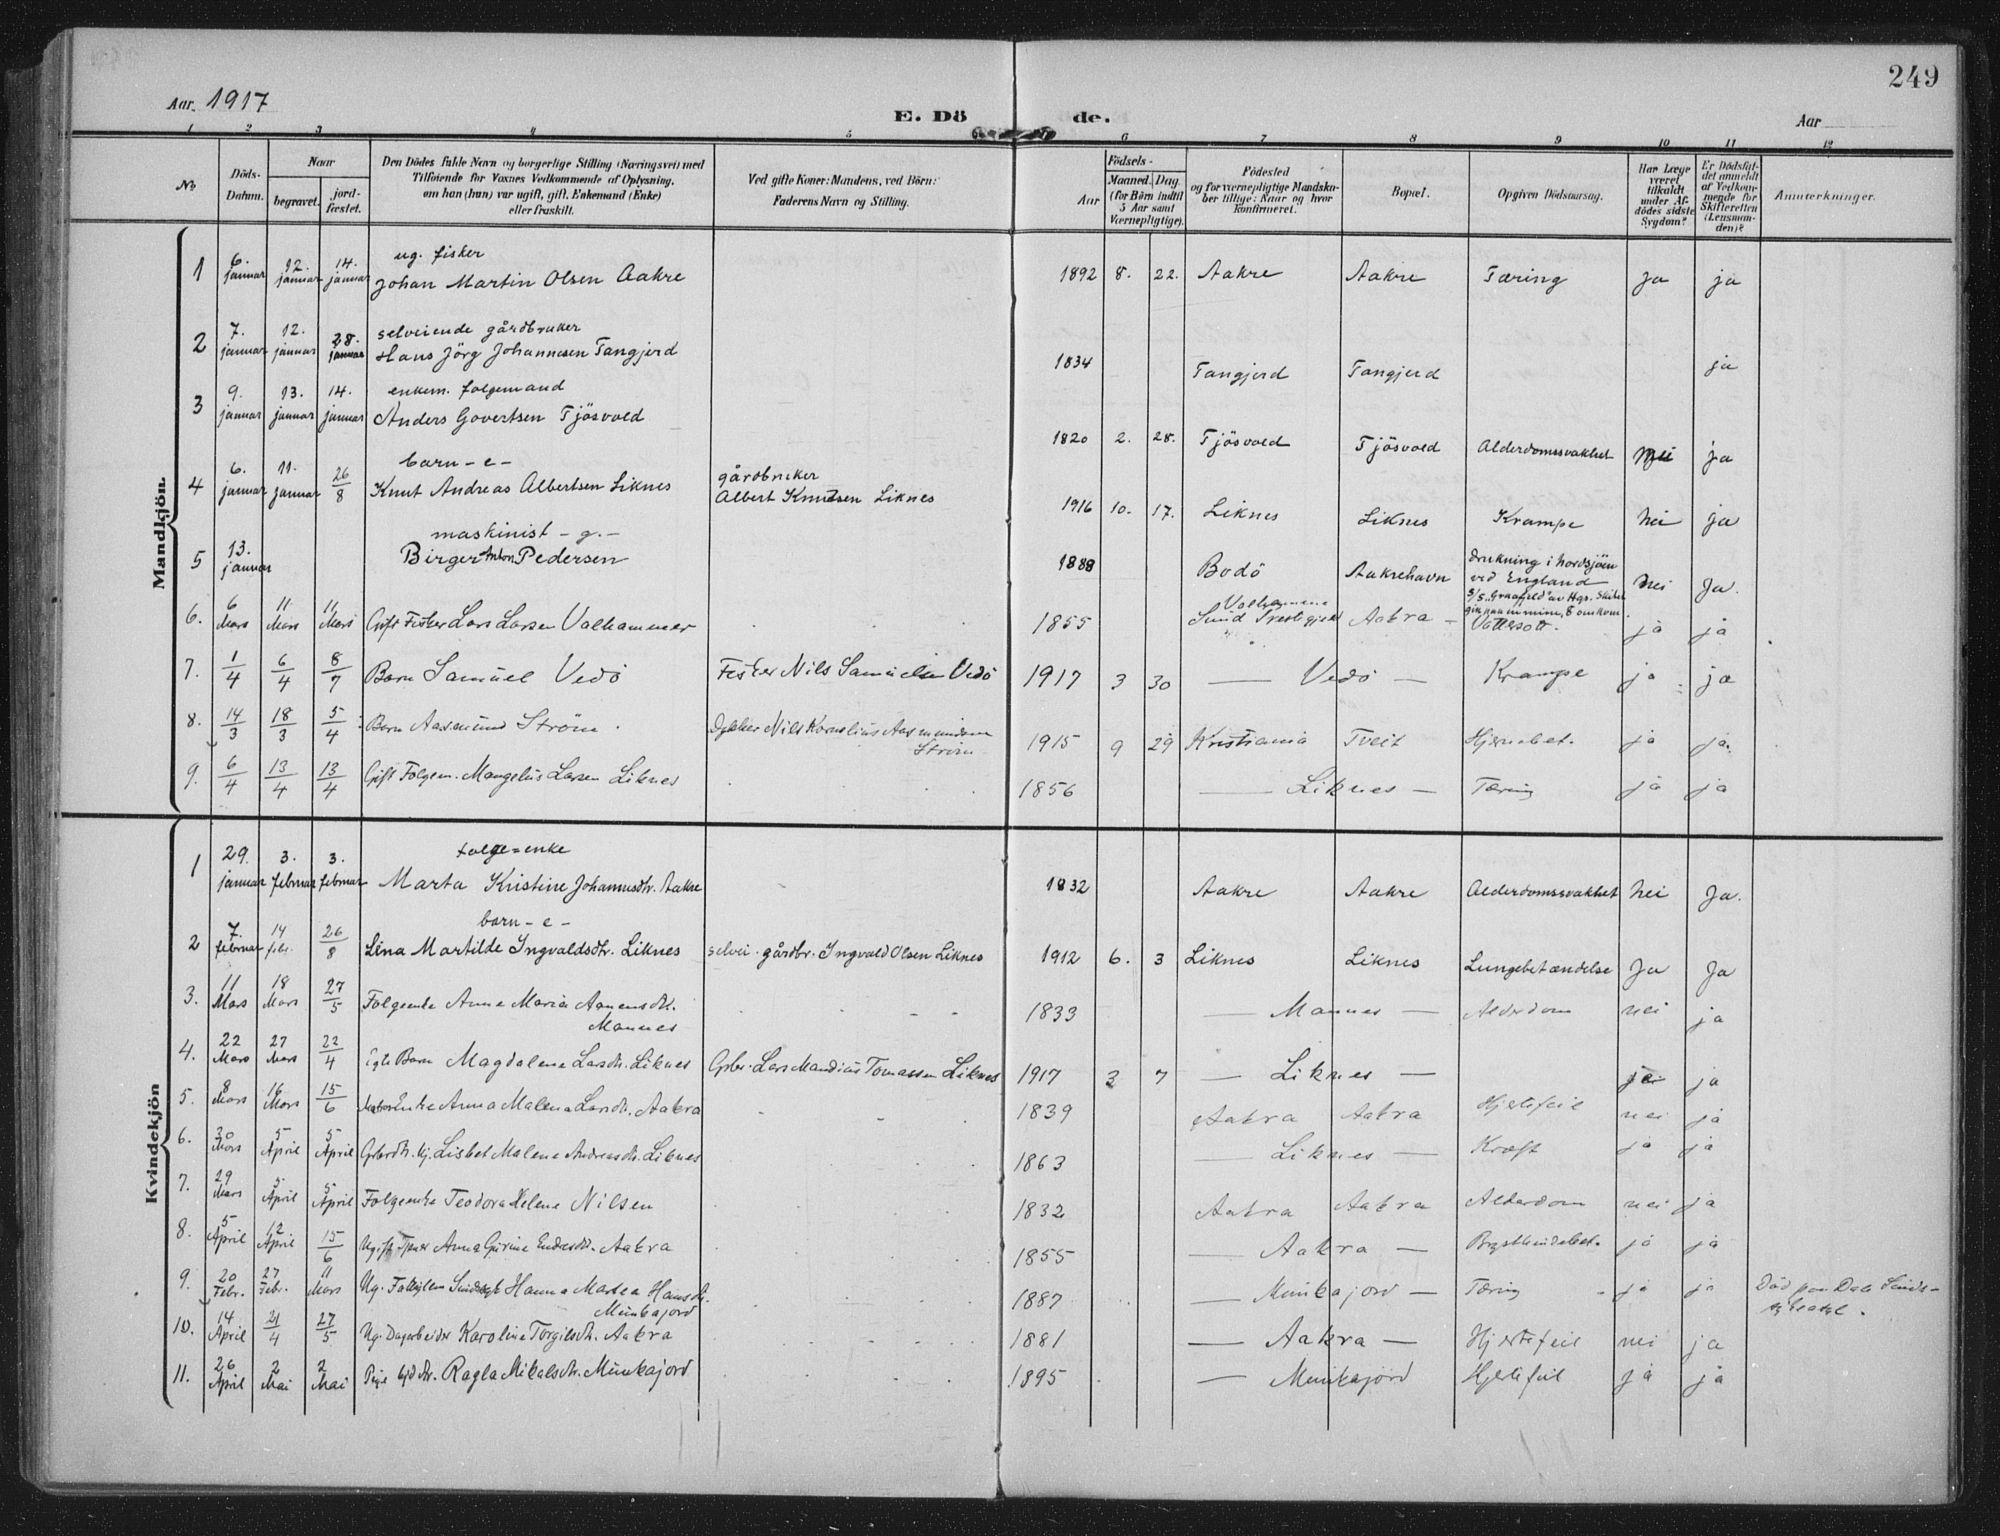 249
Aar 1917
E. Dö de.
Aar
1 2 3 4 5 6 7 8 9 10 11 12
No
Döds-
Datum.
Naar
begravet.
jord-
fæstet.
Den Dödes fulde Navn og borgerlige Stilling (Næringsvei) med
Tilföiende for Voxnes Vedkommende af Oplysning,
om han (hun) var ugift, gift, Enkemand (Enke)
eller fraskilt.
Ved gifte Koner: Mandens, ved Börn:
Faderens Navn og Stilling.
Födsels-
Aar
Maaned. Dag.
(for Börn indtil
5 Aar samt
Værnepligtige).
Födested
og for værnepligtige Mandska-
ber tillige: Naar og hvor
konfirmeret.
Bopæl.
Opgiven Dödsaarsag.
Har Læge
været
tilkaldt
under Af-
dödes sidste
Sygdom?
Er Dödsfal-
det anmeldt
af Vedkom-
mende for
Skifteretten
(Lensman-
den)?
Anmærkninger.
Mandkjön.
ug. fisker
1 6. januar 12. januar 14. januar Johan Martin Olsen Aakre 1892 8. 22. Aakre Aakre Tæring Ja ja
selveiende gårdbruker
2 7. januar 12. januar 28. januar Hans Jörg Johannesen Tangjerd 1834 Tangjerd Tangjerd ja
enkem. folgemand
3 9. januar 13. januar 14. januar Anders Govertsen Tjösvold 1820 2. 28. Tjösvold Tjösvold Alderdomssvakhet Nei ja
barn - e -
4 6. januar 11. januar 26/8 Knut Andreas Albertsen Liknes gårdbruker
Albert Knutsen Liknes 1916 10. 17. Liknes Liknes Krampe nei ja
maskinist - g. -
5 13. januar Birger Anton Pedersen 1888 Bodö Aakrehavn drukning i nordsjöen
ved England
nei Ja.
6. 6 Mars 11 Mars 11 Mars Gift Fisker Lars Larsen Valhammer 1855 Valhammer
Sund Aakra - Vattersott. ja ja
7. 1/4 6/4 8/7 Barn Samuel Vedö Fisker Nils Samuelsen Vedö 1917 3 30 — Vedö — Krampe ja ja
8. 14/3 18/3 5/4 Barn Aasmund Ström Nils Kornelius Aasmundsen
Ström 1915 9 29 Kristiania Tveit Hjernebet. ja ja.
9. 6/4 13/4 13/4 Gift Folgem. Mangelus Larsen Liknes 1856 — Liknes — Tæring ja ja
Kvindekjön
folge-enke
1 29. januar 3. februar 3. februar Marta Kristine Johannesdtr. Aakre 1832 Aakre Aakre Alderdomssvakhet nei Ja.
barn - e -
2 7. februar 14 febr. 26/8 Lina Martilde Ingvaldsdtr. Liknes selvei. gårdbr. Ingvald Olsen Liknes 1912 6. 3 Liknes Liknes Lungebetændelse Ja Ja
3. 11 Mars 18 Mars 27/5 Folgeenke Anne Maria Aanensdtr.
Mannes 1833 — Mannes — Alderdom nei ja
4. 22 Mars 27 Mars 22/4 Egte Barn Magdalena Larsdtr. Liknes Gbr. Lars Mandius Tomassen Liknes 1917 3 7 — Liknes — ja
5. 8 Mars 16 Mars 15/6 Enke Anna Malena Larsdtr. Aakra 1839 Aakra Aakra Hjertefeil nei ja
6. 30 Mars 5 April 5 April Gbrdtr. Ug. Lisbet Malene Andreasdtr. Liknes 1863 — Liknes — Kræft ja ja
7. 29 Mars 5 April 5 April Folgeenke Teodora Helene Nilsen 1832 Aakra Aakra Alderdom nei ja
8. 5 April 12 April 15/6 Ugift Anna Gurine Endresdtr. Aakra 1855 — Aakra — Brysthindebet. ja ja
9. 20 Febr. 27 Febr. 11 Mars Ug. Hanna Martea Hansdtr.
Munkajord 1887 — Munkajord — Tæring ja ja Död paa Dale Sinds-
sygeasyl.
10. 14 April 21/4 27/5 Ug. Dagarbeider Karoline Torgilsdtr. Aakra 1881 — Aakra — Hjertefeil nei ja
11. 26 April 2 Mai 2 Mai Pige Ragla Mikalsdtr. Munkajord 1895 — Munkajord Hjertefeil ja ja